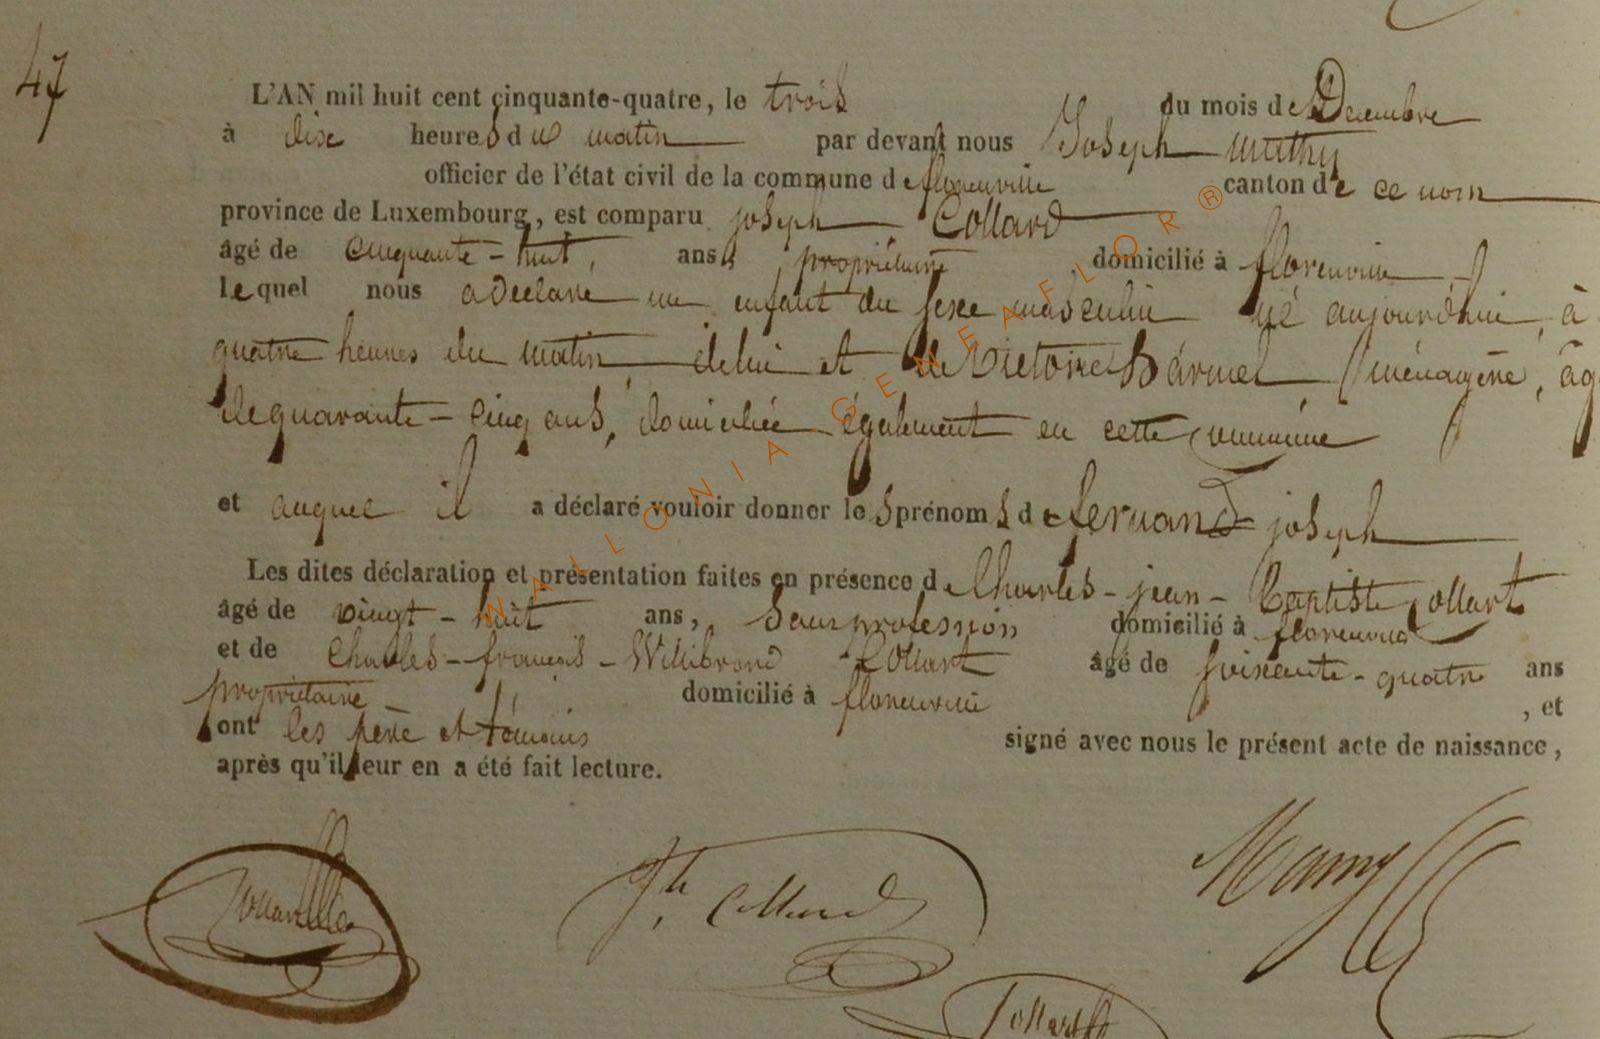 47
L'AN mil huit cent cinquante-quatre, le trois du mois de Decembre
à dix heures du matin par devant nous Joseph
officier de l'état civil de la commune de florenville canton de ce nom
province de Luxembourg, est comparu joseph Collard
âgé de cinquante-huit, ans, propriétaire domicilié à florenville
lequel nous a déclaré un enfant du sexe masculin né aujourd'hui, à
quatre heures du matin de lui et de Victoire ménagère, âg
de quarante-cinq ans, domiciliée également en cette commune
et auquel il a déclaré vouloir donner les prénoms de fernand joseph
Les dites déclaration et présentation faites en présence de Charles-jean-Baptiste Collart
âgé de vingt-huit ans, sans profession domicilié à florenville
et de Charles-françois-Willibrord Collart âgé de soixante-quatre ans
propriétaire domicilié à florenville , et
ont les père et témoins signé avec nous le présent acte de naissance,
après qu'il leur en a été fait lecture.
Jh. Collard
WALLONIA GENEAFLOR ®